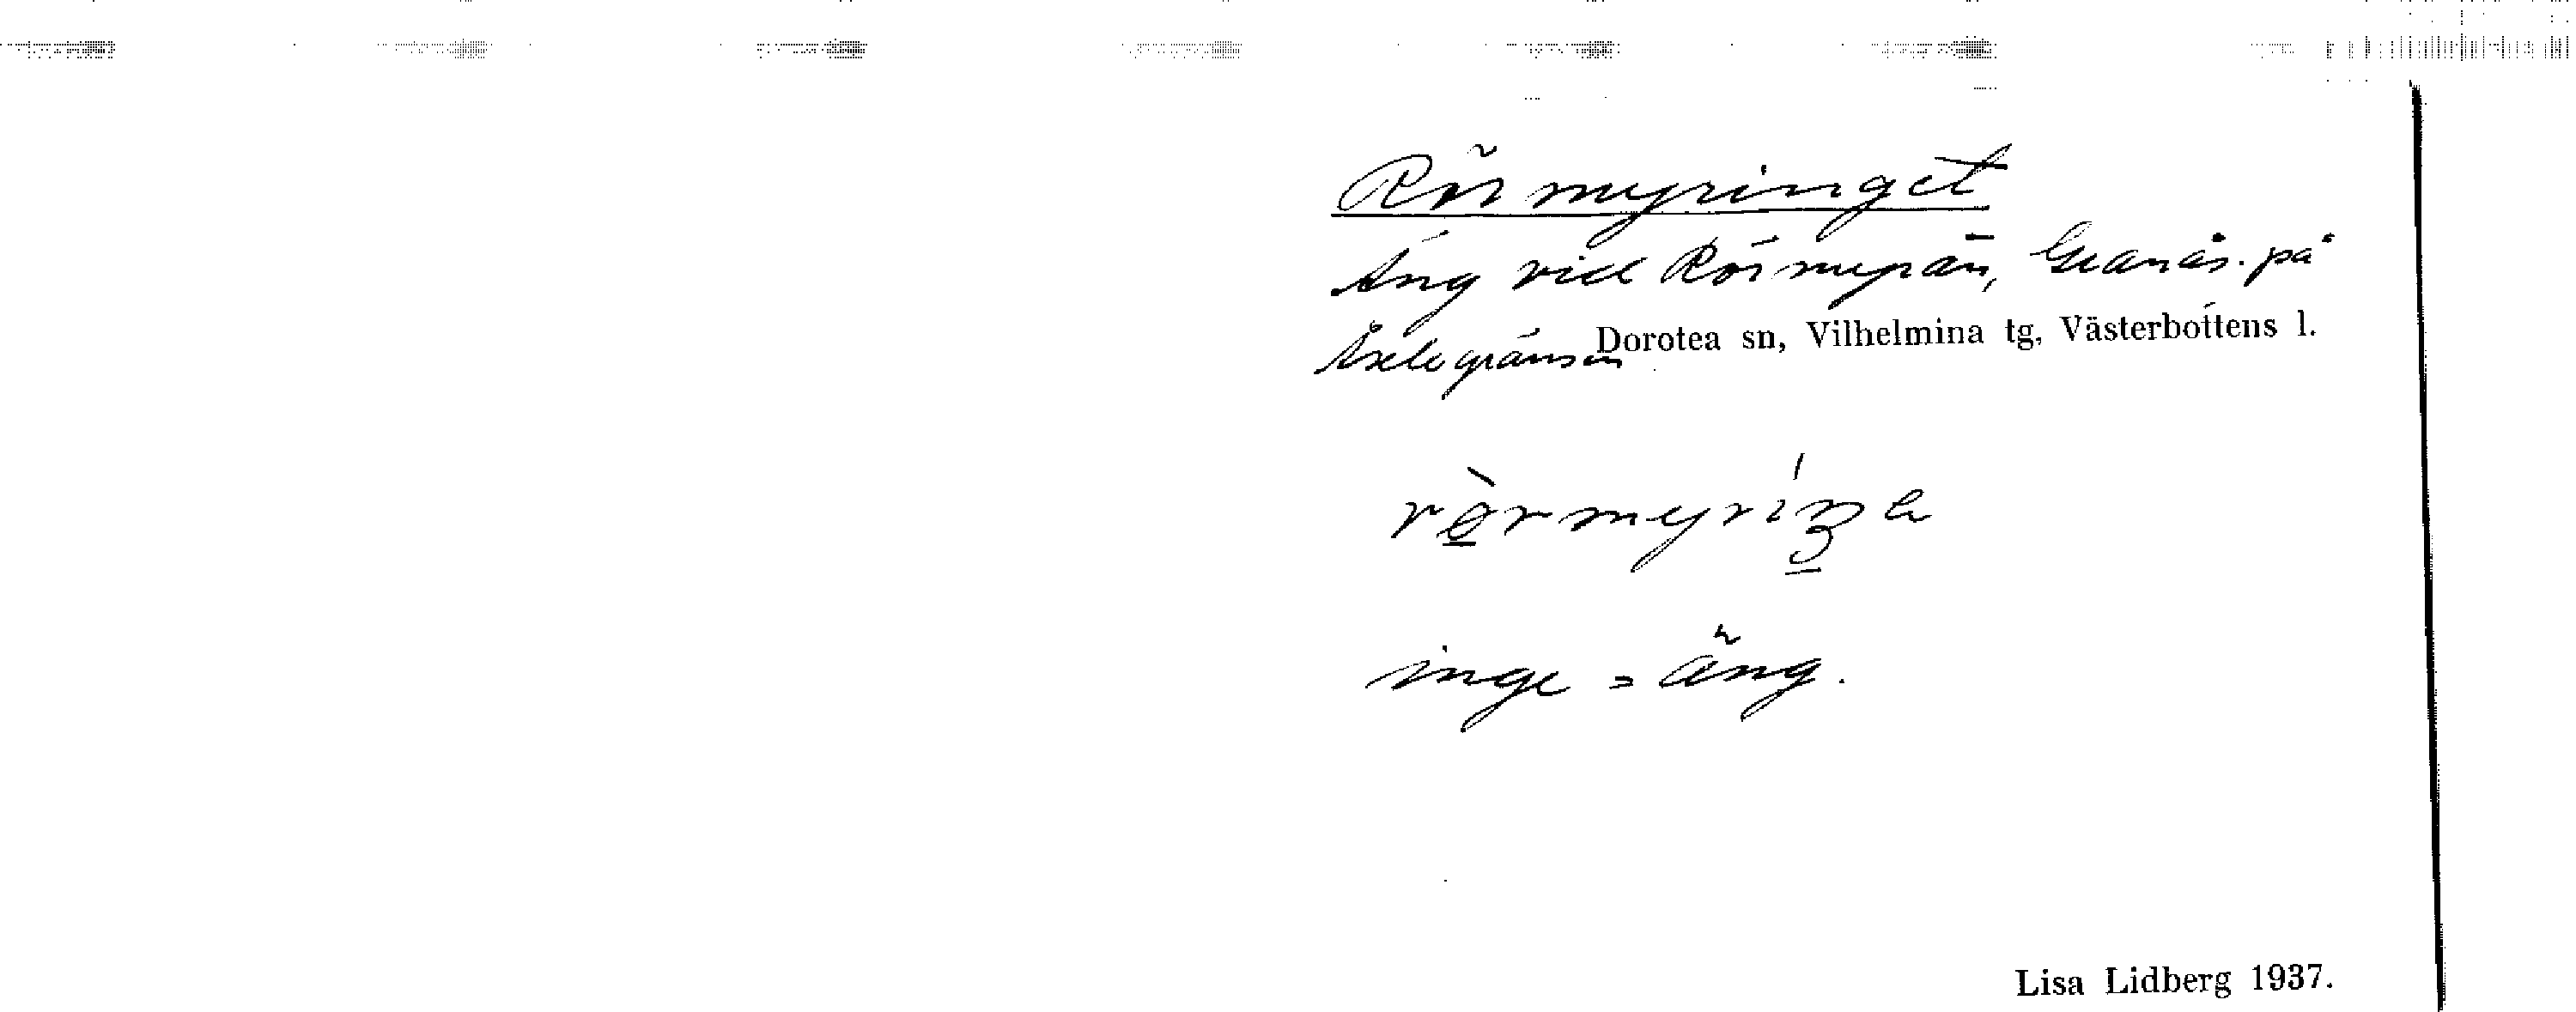 Rörmyringet
Äng vid Rörmyrän, Granås. på
Dorotea sn, Vilhelmina tg, Västerbottens l.
Åselegränsen
inge = äng.
Lisa Lidberg 1937.